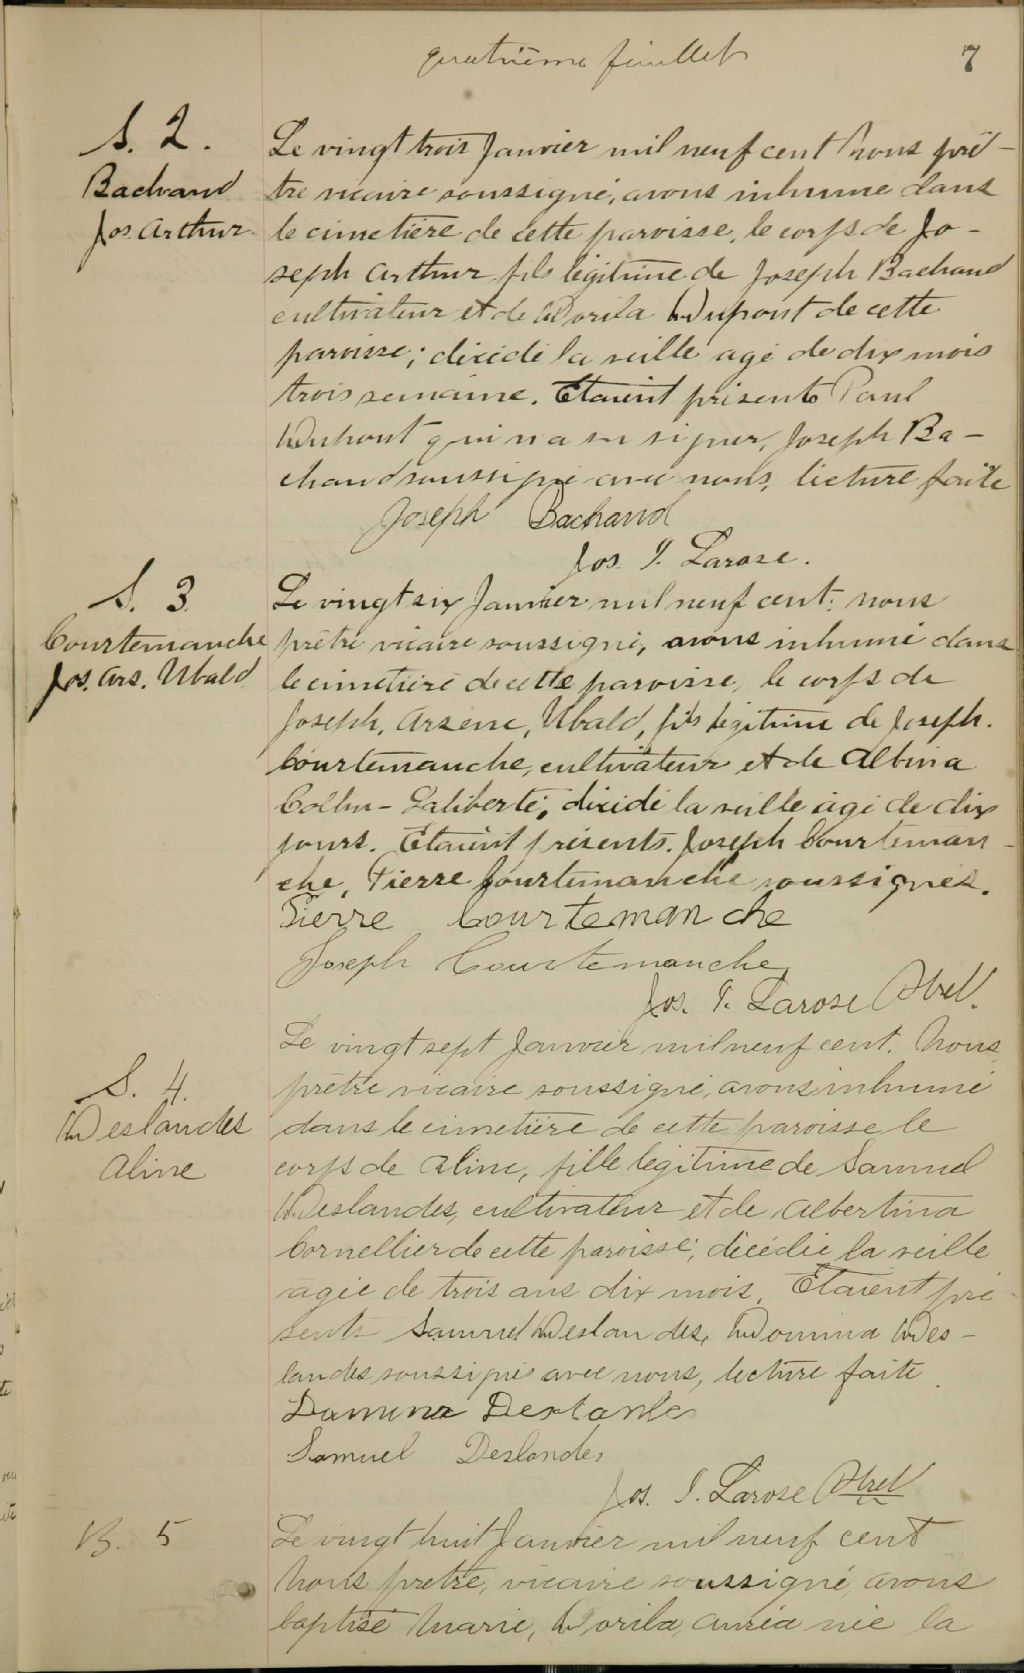 quatrième feuillet
7
S. 2.
Bachand
Jos. Arthur
Le vingt trois Janvier mil neuf cent nous prê-
tre vicaire soussigné, avons inhumé dans
le cimetière de cette paroisse, le corps de Jo-
seph Arthur fils légitime de Joseph Bachand
cultivateur et de Dorila Dupont de cette
paroisse; décédé la veille agé de dix mois
trois semaine. Etaient présents Paul
Dupont qui n'a su signer, Joseph Ba-
chand soussigné avec nous, lecture faite
Joseph Bachand
Jos. I. Larose.
S. 3
Courtemanche
Jos. Ars. Ubald
Le vingt six Janvier mil neuf cent: nous
prêtre vicaire soussigné, avons inhumé dans
le cimetière de cette paroisse, le corps de
Joseph, Arsène, Ubald, fils légitime de Joseph.
Courtemanche, cultivateur et de Albina
Laliberté; décédé la veille âgé de dix
jours. Etaient présents. Joseph Courteman-
che, Pierre Courtemanche soussignés.
Pierre Courtemanche
Joseph Courtemanche
Jos. I. Larose Ptre V.
S. 4.
Deslandes
Aline
Le vingt sept Janvier mil neuf cent. Nous
prêtre vicaire soussigné, avons inhumé
dans le cimetière de cette paroisse le
corps de Aline, fille légitime de Samuel
Deslandes, cultivateur et de Albertina
Cornellier de cette paroisse; décédée la veille
agée de trois ans dix mois. Etaient pré-
sents Samuel Deslandes, Domina Des-
landes soussignés avec nous, lecture faite.
Damina Deslandes
Samuel Deslandes
Jos. I. Larose Ptre V
B. 5
Le vingt huit Janvier mil neuf cent
Nous pretre, vicaire soussigné, avons
baptisé Marie, Dorila, Auréa née la